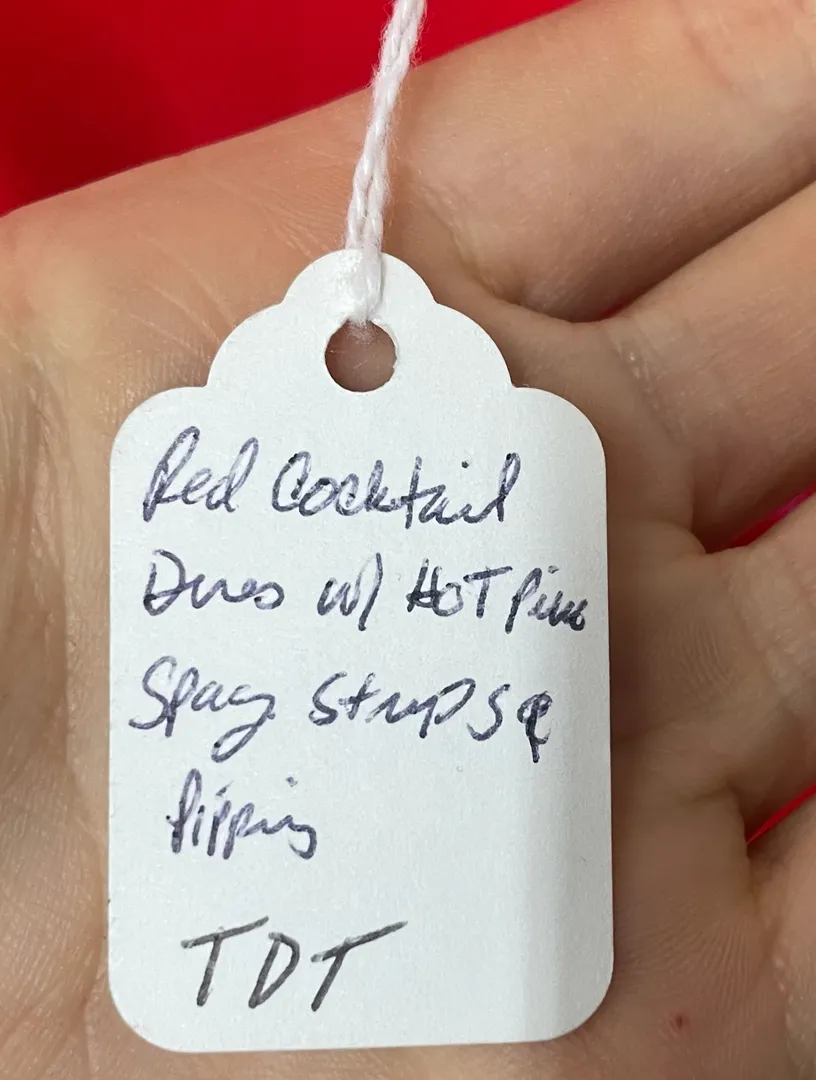 Red Cocktail
Dress w/ HOT Pink
Spag Straps &
Pipping
TDT